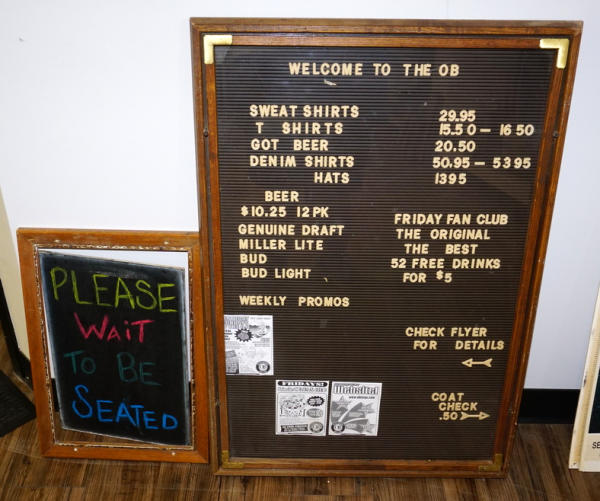 WELCOME TO THE OB
SWEAT SHIRTS 29.95
T SHIRTS 15.50 - 16 50
GOT BEER 20.50
DENIM SHIRTS 50.95 - 5395
HATS 1395
BEER
$10.25 12PK
GENUINE DRAFT
MILLER LITE
BUD
BUD LIGHT
WEEKLY PROMOS
FRIDAY FAN CLUB
THE ORIGINAL
THE BEST
52 FREE DRINKS
FOR $5
CHECK FLYER
FOR DETAILS
COAT
CHECK
.50
FRIDAYS!
Website!
PLEASE
WAiT
TO BE
SEATED
SE